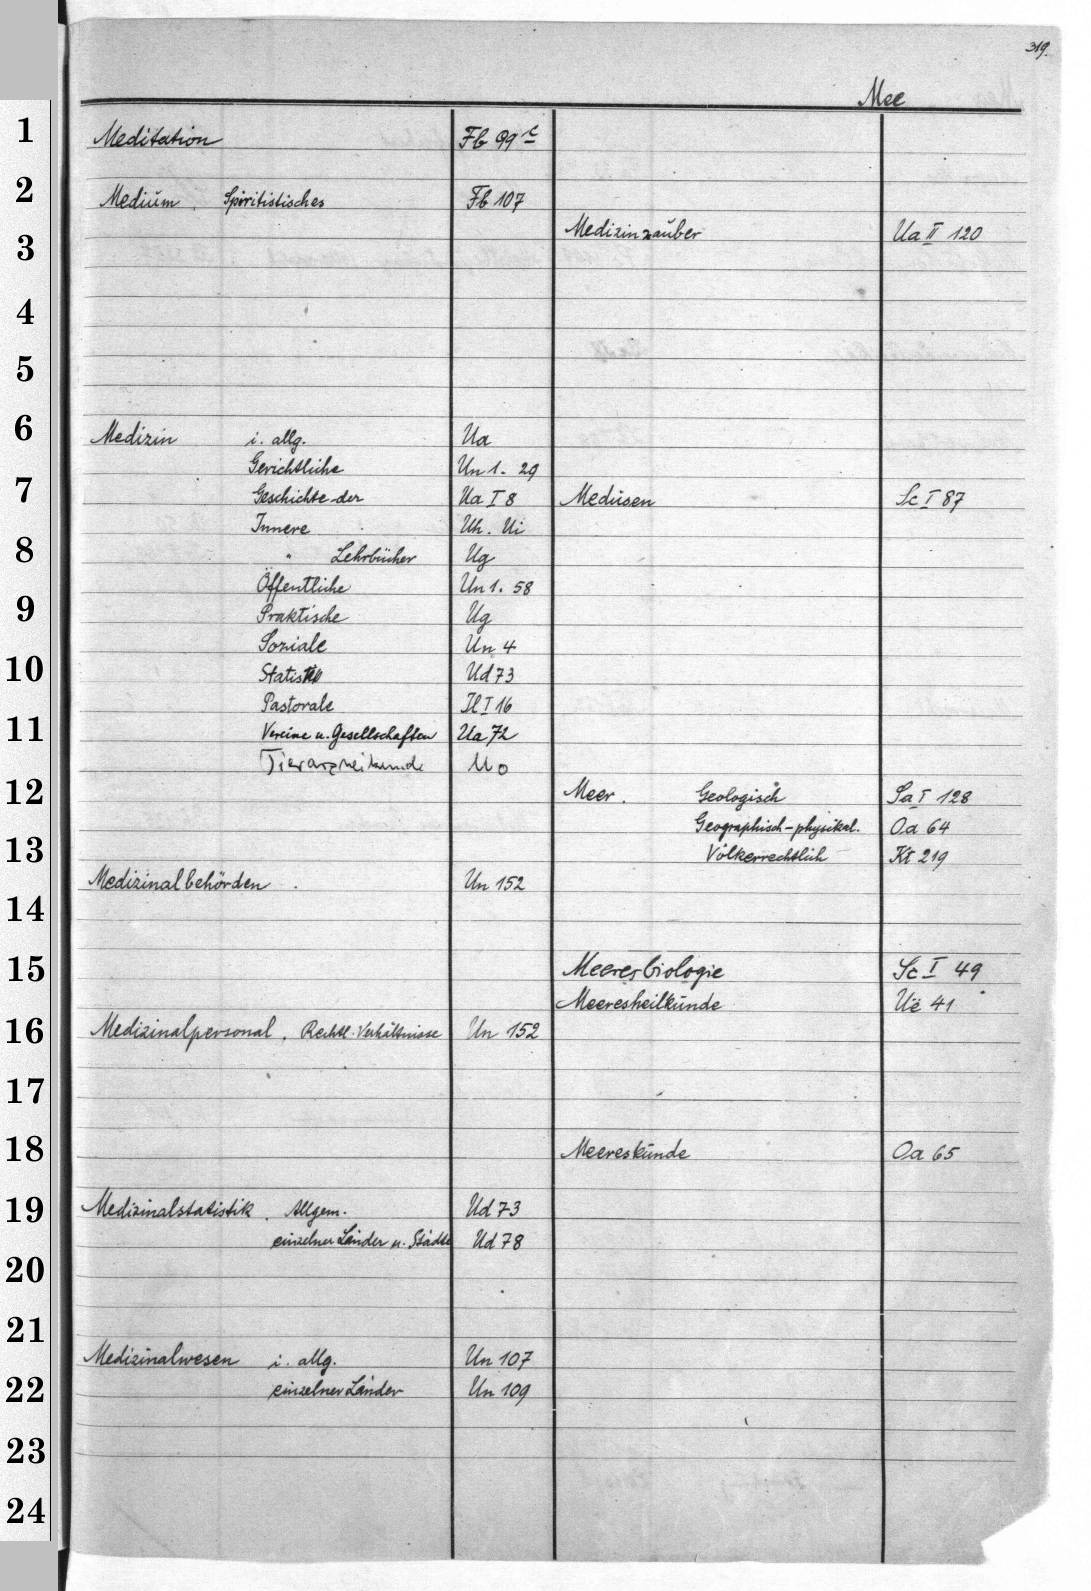 319.
Mee
Meditation Fb 99 c
Medium. Spiritistisches Fb 107
Medizin i. allg. Ua
Gerichtliche Un 1. 29
Geschichte der Ua I 8
Innere Uh. Ui
" Lehrbücher Ug
Öffentliche Un 1. 58
Praktische Ug
Soziale Un 4
Statistik Ud 73
Pastorale Il I 16
Vereine u. Gesellschaften Ua 72
Tierarzneikunde Uo
Medizinalbehörden Un 152
Medizinalpersonal. Rechtl. Verhältnisse Un 152
Medizinalstatistik. Allgem. Ud 73
einzelner Länder u. Städte Ud 78
Medizinalwesen i. allg. Un 107
einzelner Länder Un 109
Medizinzauber Ua II 120
Medusen Sc I 87
Meer. Geologisch Sa I 128
Geographisch-physikal. Oa 64
Völkerrechtlich Kt 219
Meeresbiologie Sc I 49
Meeresheilkunde Ue 41
Meereskunde Oa 65
1
2
3
4
5
6
7
8
9
10
11
12
13
14
15
16
17
18
19
20
21
22
23
24